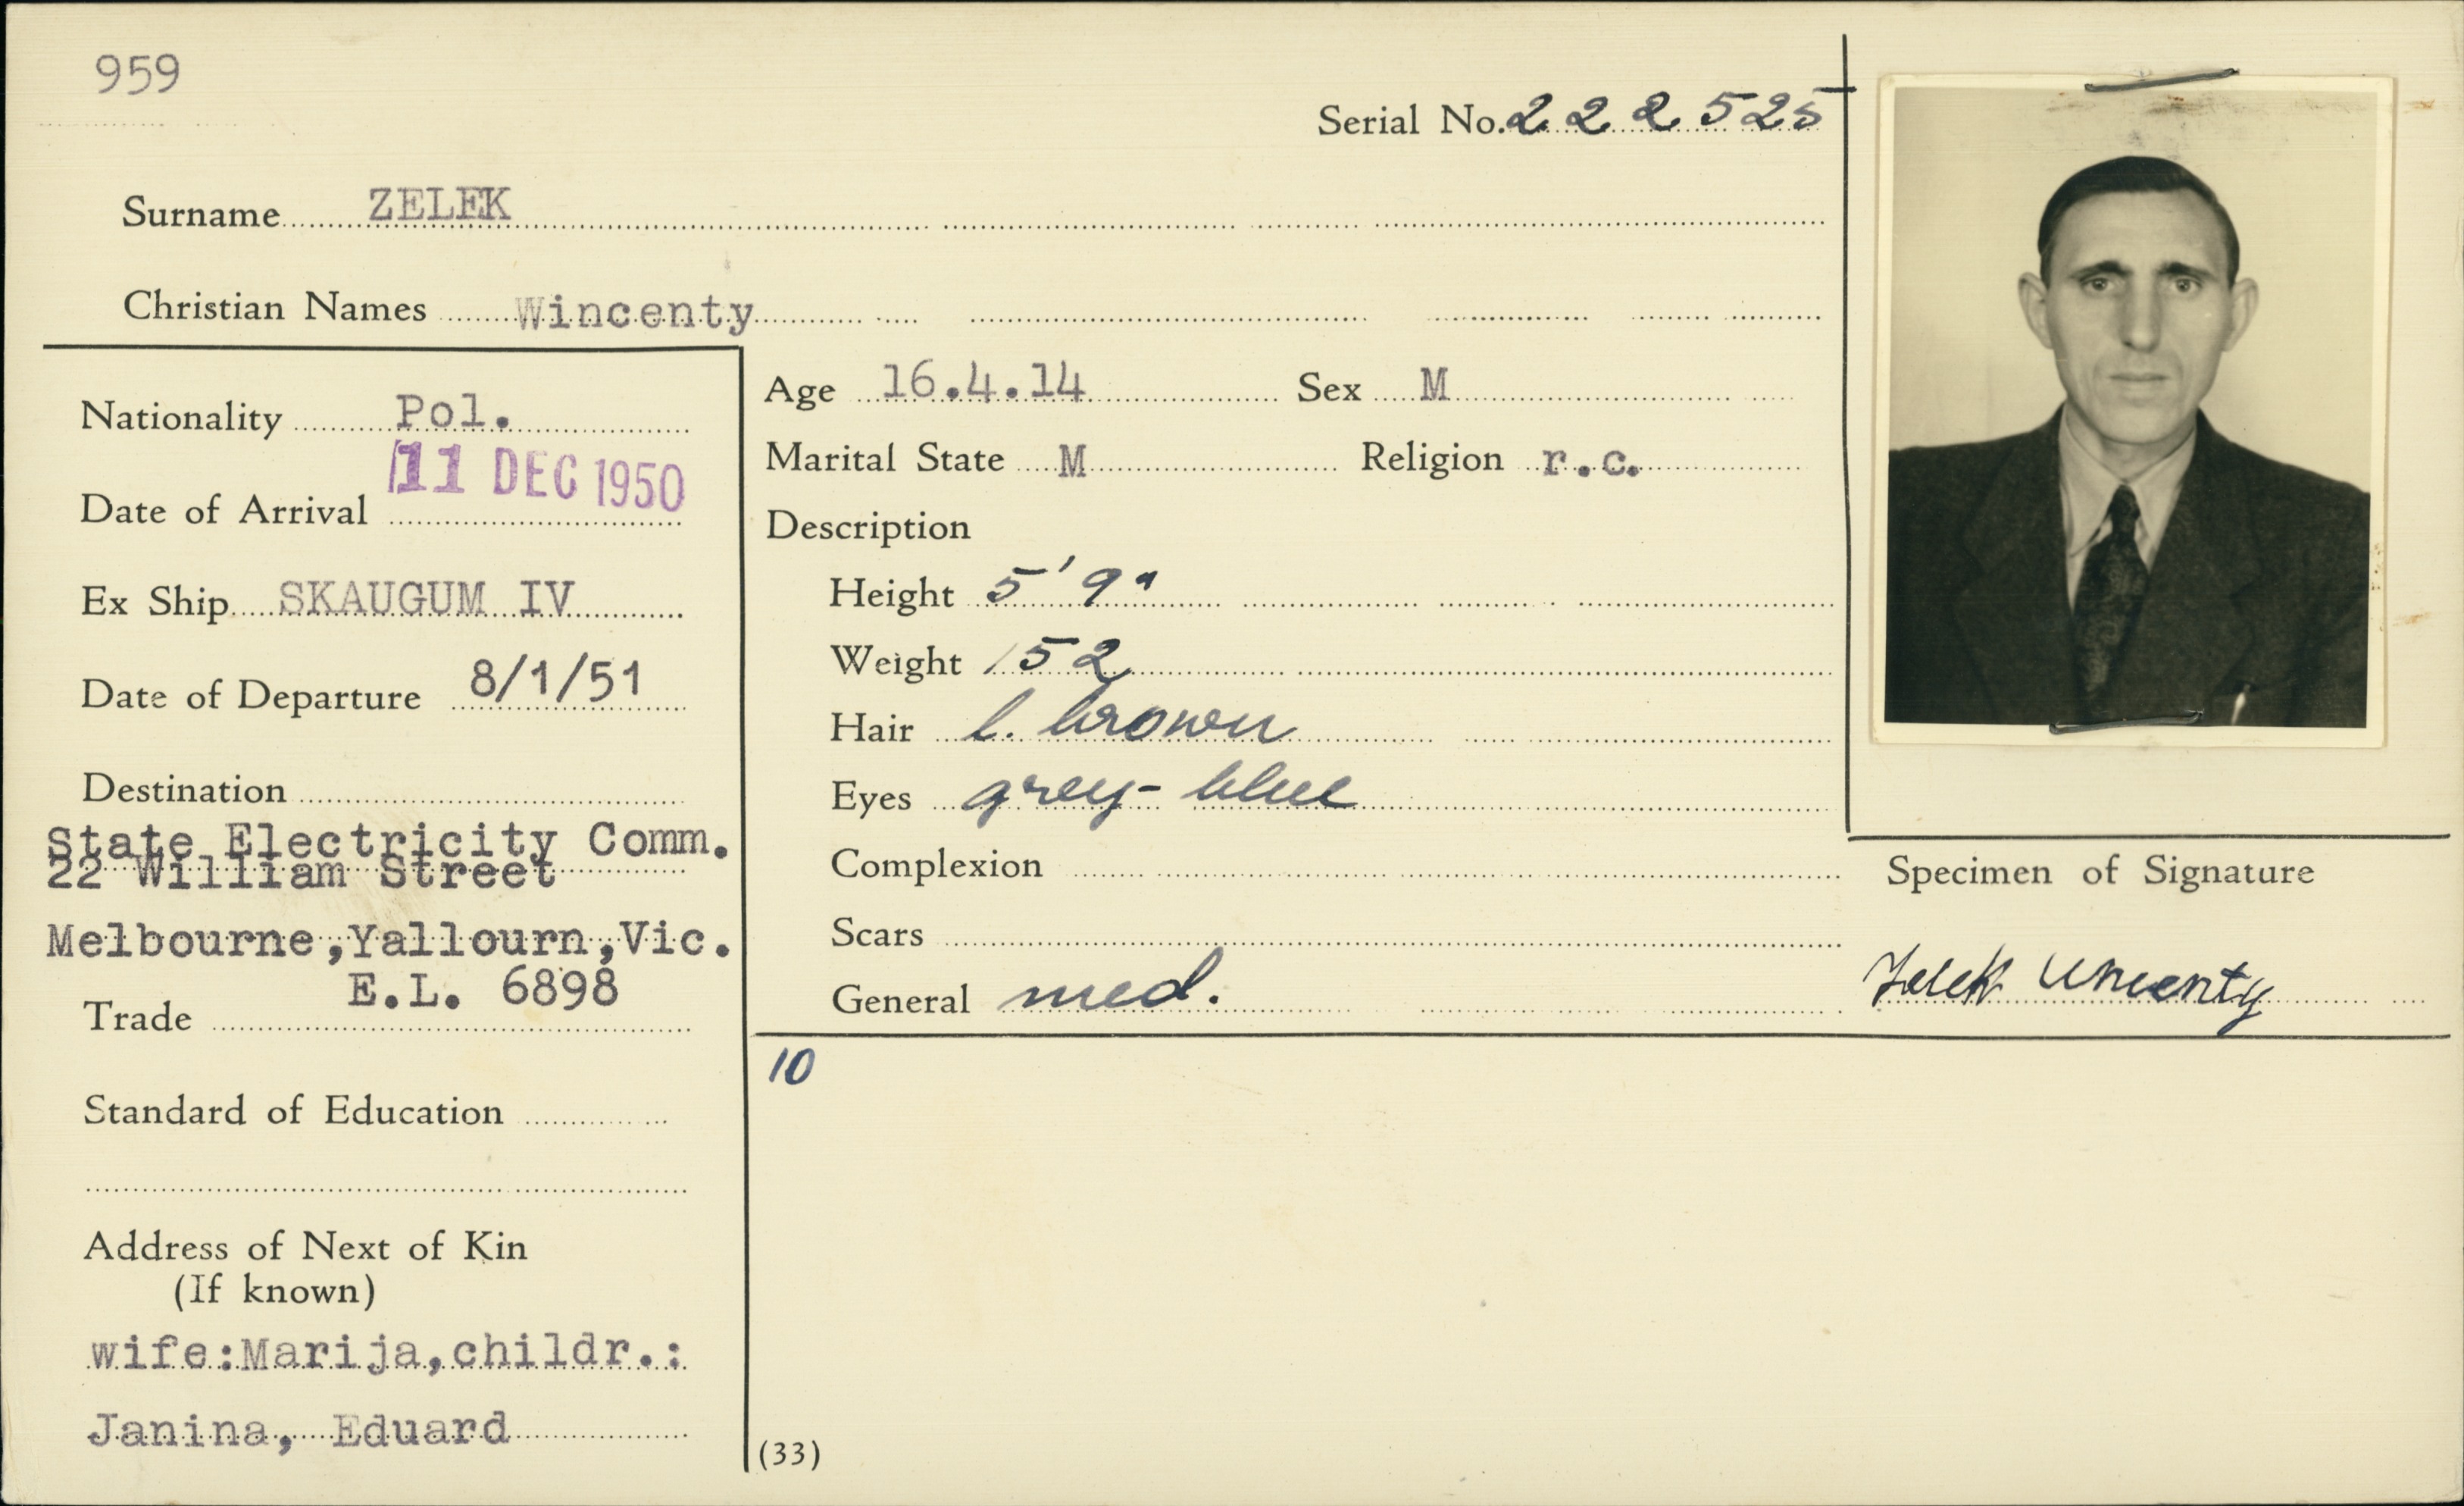 959
Serial No. 222525
Surname ZELEK
Christian Names Wincenty
Nationality Pol.
Date of Arrival 11 DEC 1950
Ex Ship SKAUGUM IV
Date of Departure 8/1/51
Destination
State Electricity Comm.
22 William Street
Melbourne,Yallourn,Vic.
E.L. 6898
Trade
Standard of Education
Address of Next of Kin
(If known)
wife:Marija,childr.:
Janina, Eduard
Age 16.4.14 Sex M
Marital State M Religion r.c.
Description
Height 5' 9"
Weight 152
Hair l. brown
Eyes grey-blue
Complexion
Scars
General med.
10
(33)
Specimen of Signature
Zelek Wincenty